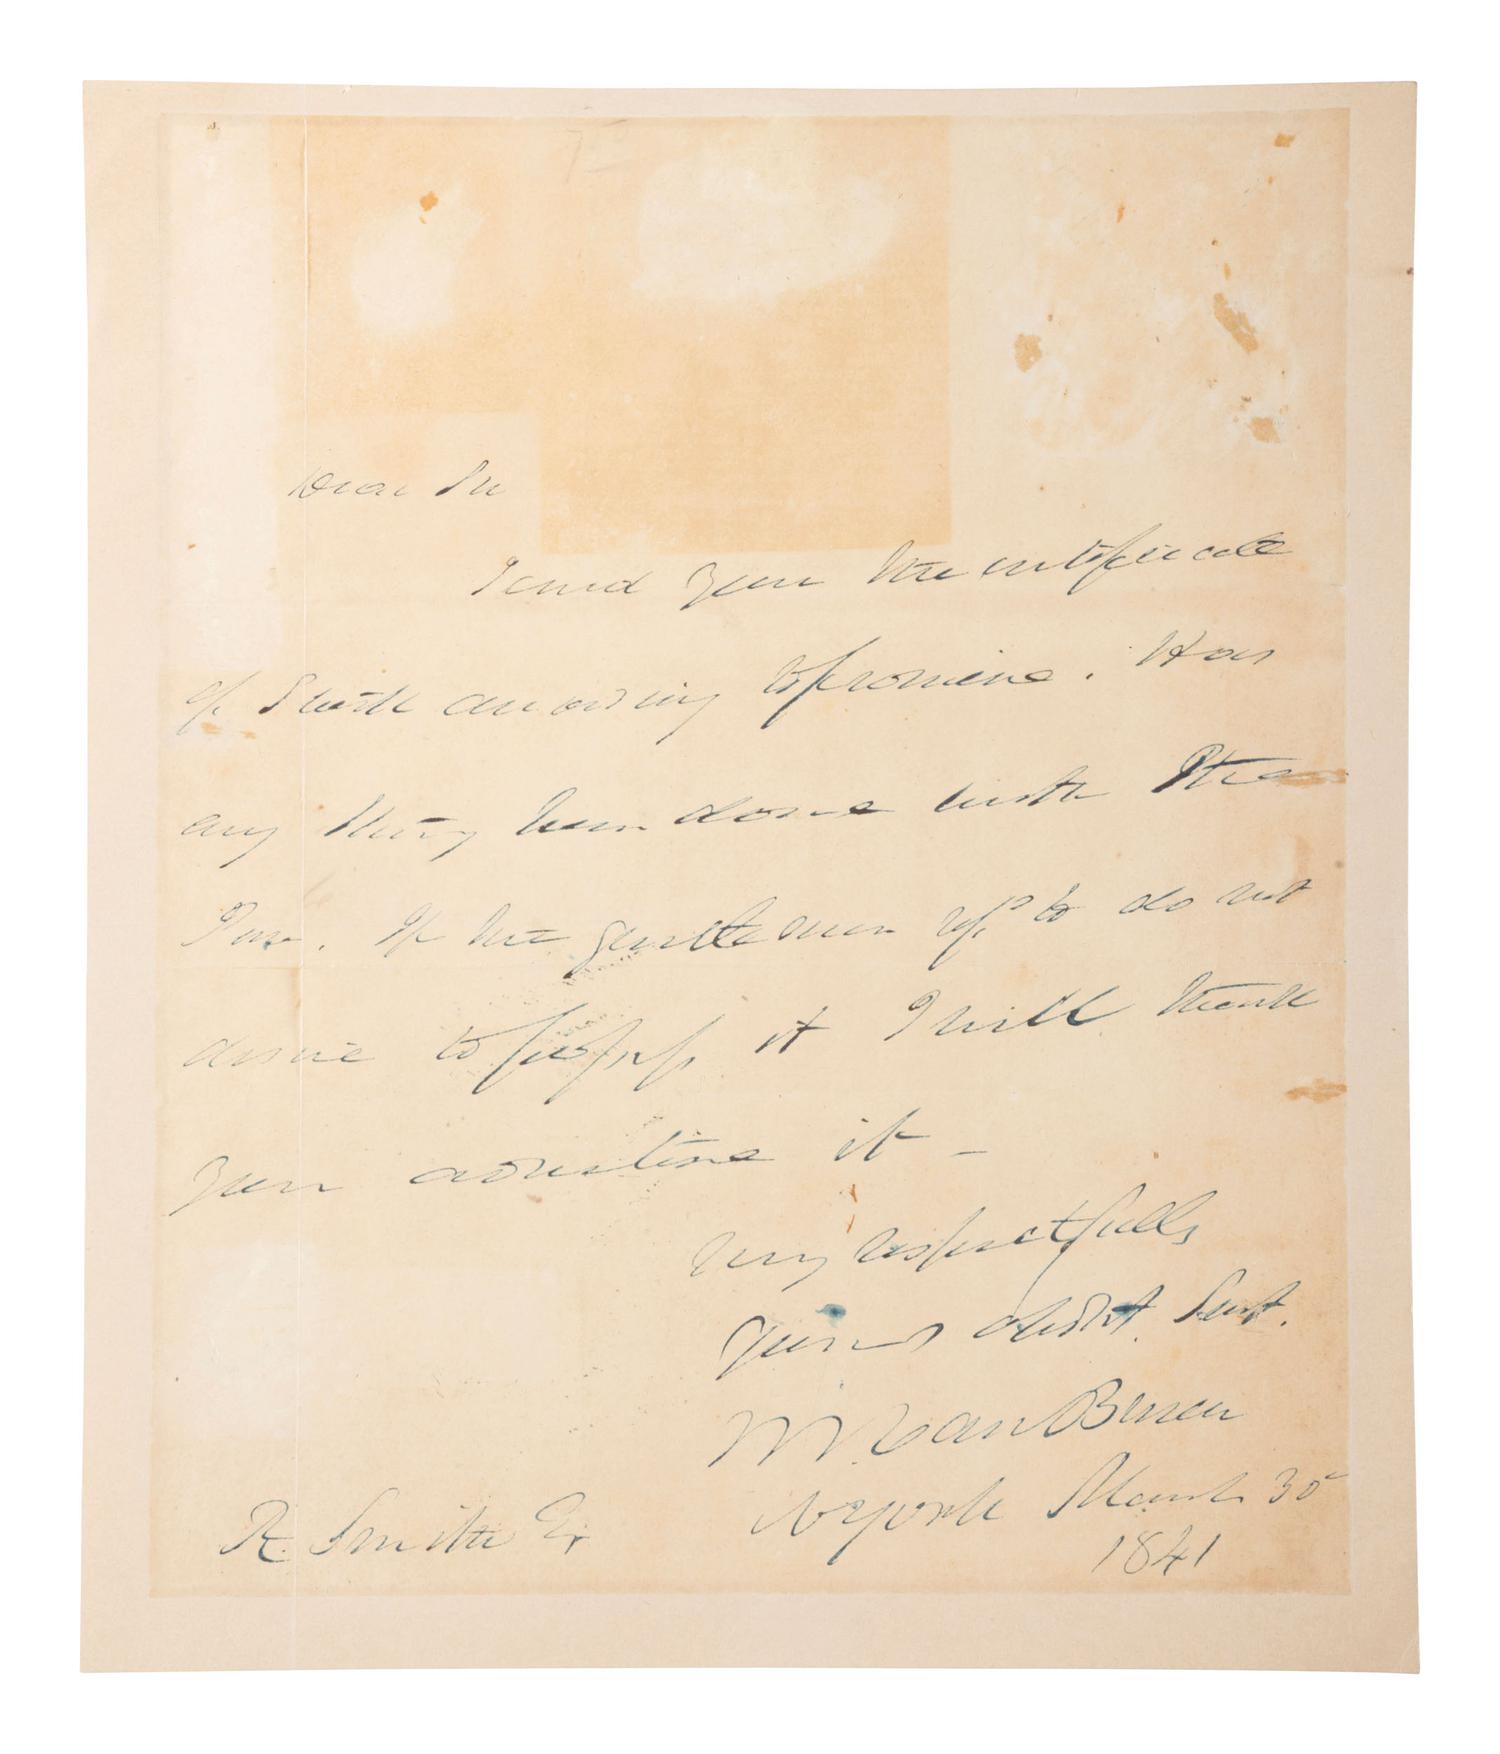 Dear Sir
I send you the certificate
of Stock according to promise. Has
any thing been done with the
If the gentlemen to do not
desire to it I will thank
you advertise it —
very respectfully
Your obdt. Servt.
M. Van Buren
NYork March 30
1841
R. Smith Er